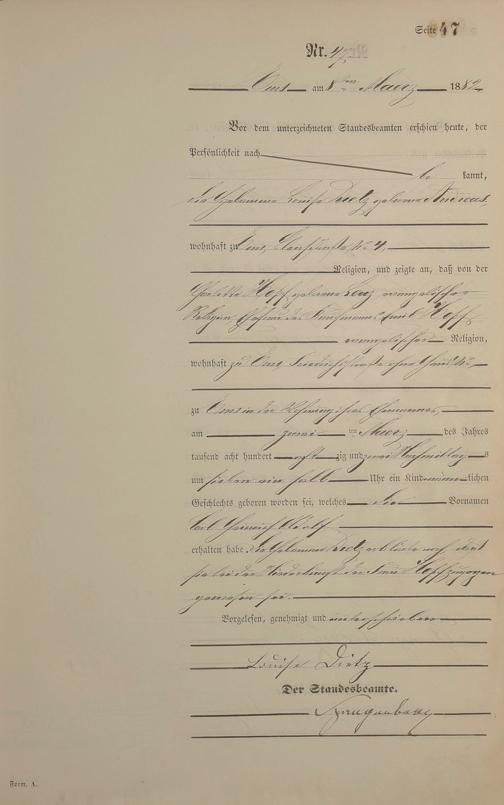 Seite 47
Nr. 47
Ems am 8ten Maerz 1882
Vor dem unterzeichneten Standesbeamten erschien heute, der
Persönlichkeit nach
be kannt,
die Hebamme Louise Dietz geborene Andreas
wohnhaft zu Ems, No 4,
Religion, und zeigte an, daß von der
Hopf geborene Lenz, evangelischer
Religion, Ehefrau des Kaufmanns Emil Hopf,
evangelischer Religion,
wohnhaft zu Ems,
zu Ems in der Wohnung ihres Ehemannes,
am zwei ten Maerz des Jahres
tausend acht hundert acht zig und zwei Nachmittags
um sieben ein halb Uhr ein Kind männlichen
Geschlechts geboren worden sei, welches die Vornamen
Carl Heinrich Adolf
erhalten habe. Die Hebamme Dietz erklärte noch, daß
sie bei der Niederkunft der Frau Hopf zugegen
gewesen sei.
Vorgelesen, genehmigt und unterschrieben
Louise Dietz
Der Standesbeamte.
Form. A.